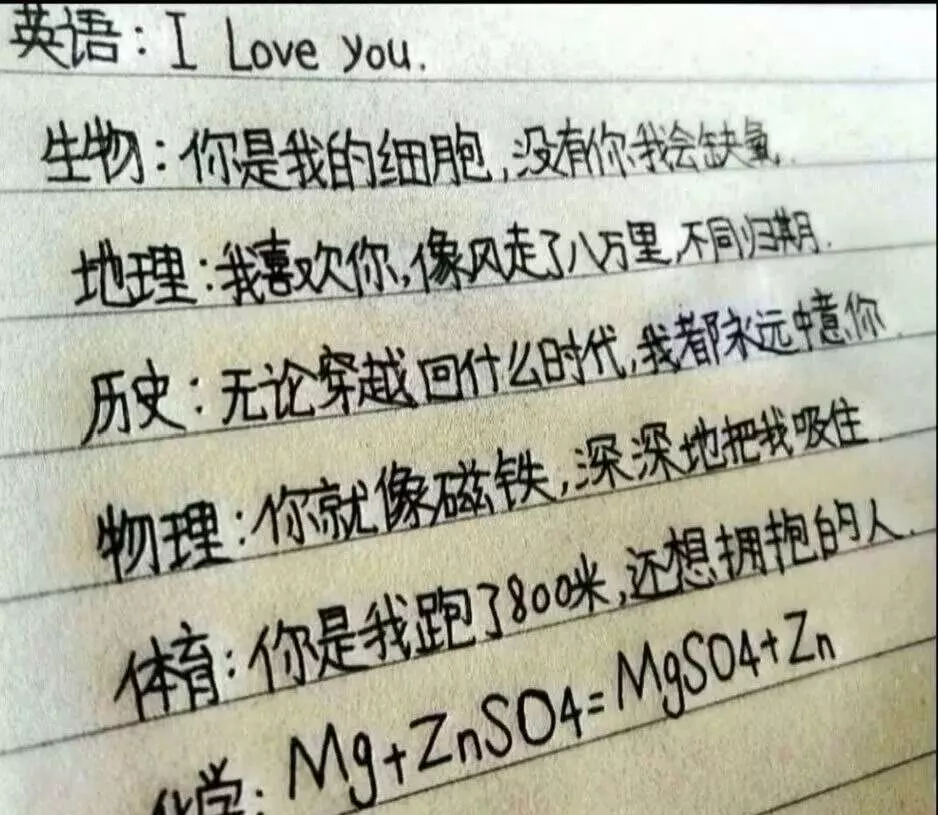 英语：I Love you.
生物：你是我的细胞，没有你我会缺氧.
地理：我喜欢你，像风走了八万里，不问归期.
历史：无论穿越回什么时代，我都永远中意你.
物理：你就像磁铁，深深地把我吸住.
体育：你是我跑了800米，还想拥抱的人.
化学：Mg+ZnSO4=MgSO4+Zn